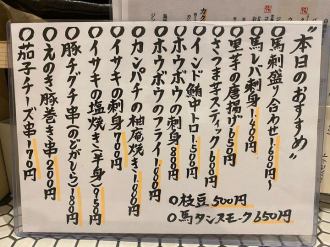 "本日のおすすめ"
○馬刺盛り合わせ1,600円~
○馬レバ刺身1,400円
○里芋の唐揚げ650円
○さつま芋スティック600円
○インド鮪中トロ1,500円
○ホウボウの刺身900円
○ホウボウのフライ1,000円
○カンパチの柚庵焼き1000円
○イサキの刺身900円
○イサキの塩焼き(半身)950円
○豚チグチ串(のどがしら)180円
○えのき豚巻き串200円
○茄子チーズ串700円
○枝豆500円
○馬タンスモーク650円